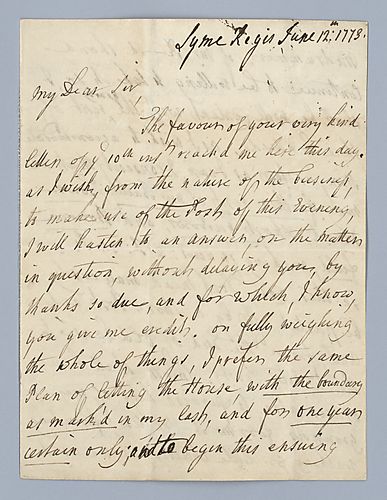 Lyme Regis June 12th 1773.
My Dear Sir
The favour of your very kind
letter of ye 10th inst reach'd me here this day.
as I wish, from the nature of the business,
to make use of the Post of this Evening,
I will hasten to an answer, on the matter
in question, without delaying you, by
thanks so due, and for which, I know,
you give me credit. on fully weighing
the whole of things, I prefer the same
Plan of letting the House, with the boundary
as mark'd in my last, and for one year
certain only; and to begin this ensuing